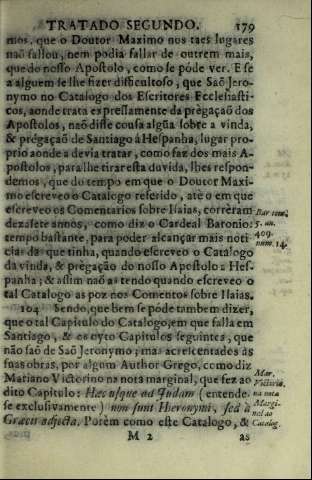 TRATADO SEGUNDO. 179
mos, que o Doutor Maximo nos taes lugares
naõ fallou, nem podia fallar de outrem mais,
que do nosso Apostolo, como se póde ver. E se
a alguem se lhe fizer difficultoso, que Saõ Jero-
nymo no Catalogo dos Escritores Ecclesiasti-
cos, aonde trata expressamente da prègaçaõ dos
Apostolos, naõ disse cousa algũa sobre a vinda,
& prégaçaõ de Santiago á Hespanha, lugar pro-
prio aonde a devia tratar, como faz dos mais A-
postolos, para lhe tirar esta duvida, lhes respon-
demos, que do tempo em que o Doutor Maxi-
mo escreveo o Catalogo referido, até o em que
escreveo os Comentarios sobre Isaias, correram
dezasete annos, como diz o Cardeal Baronio:
tempo bastante, para poder alcançar mais noti
cias da que tinha, quando escreveo o Catalogo
da vinda, & prègação do nosso Apostolo a Hes-
panha; & assim naõ as tendo quando escreveo o
tal Catalogo as poz nos Comentos sobre Isaias.
Bar tom.
5. an.
409.
num. 14.
104 Sendo, que bem se póde tambem dizer,
que o tal Capitulo do Catalogo, em que falla em
Santiago, & os oyto Capitulos seguintes, que
não saõ de Saõ Jeronymo; mas acrecentados ás
suas obras, por algum Author Grego, como diz
Mariano Victorino na nota marginal, que fez ao
dito Capitulo: Hæc usque ad Judam (entende
se exclusivamente) non sunt Hieronymi, sed à
Græcis adjecta. Porém como este Catalogo, &
Mar.
Victorin.
na nota
Margi-
nal ao
Catalog.
M 2 as